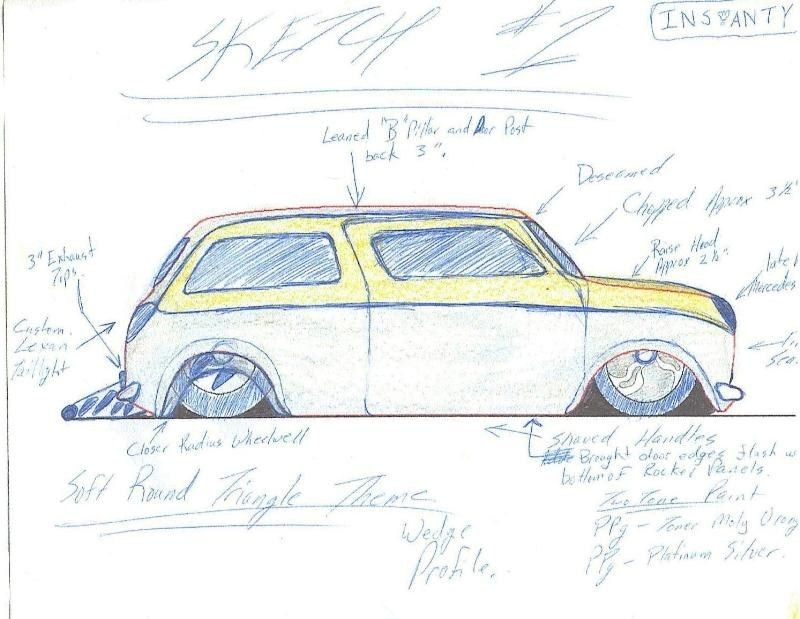 SKETCH #2
INSANTY
Leaned "B" Pillar and Door Post
back 3".
Desearmed
Chopped Approx 3 ½"
Raise Head
Approx 2 ½".
3" Exhaust
Tips.
late
Mercedes
Custom
Lexan
Taillight
1"
Closer Radius Wheelwell
Shaved Handles
Brought door edges flush w
bottom of Rocker Panels.
Soft Round Triangle Theme
Wedge
Profile.
Two Tone Paint
PPg - Toner Moly Orang
PPg - Platinum Silver.